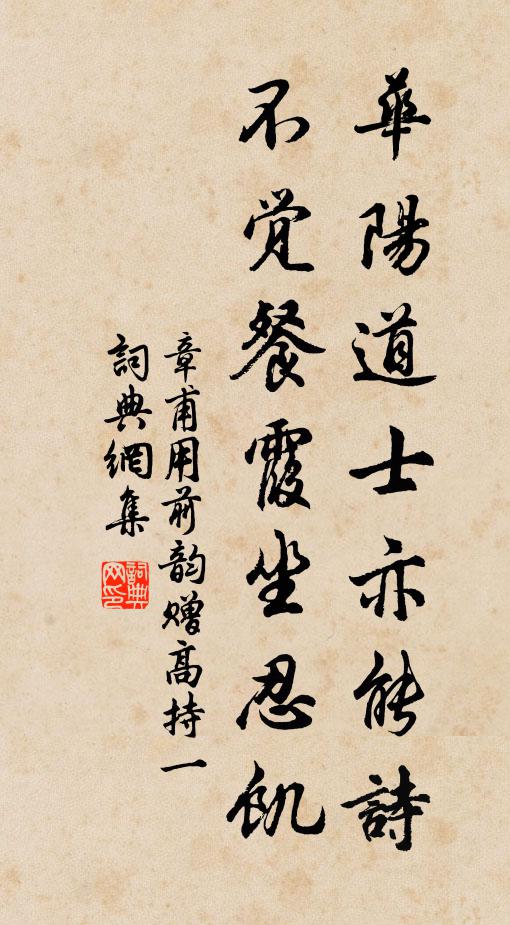 華陽道士亦能詩
不觉餐霞坐忍飢
章甫用前韵贈高持一
詞典網集
詞典网印